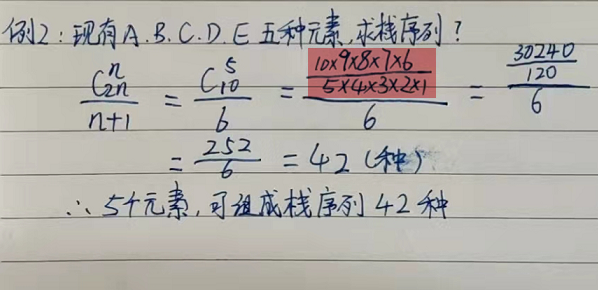 例2：现有A.B.C.D.E五种元素,求栈序列？
C₂ₙⁿ/n+1 = C₁₀⁵/6 = (10×9×8×7×6/5×4×3×2×1)/6 = (30240/120)/6
= 252/6 = 42（种）
∴ 5个元素,可组成栈序列42种